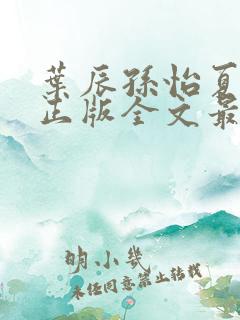 葉辰孫怡夏
正版全文最
明小幾
未經同意禁止轉載